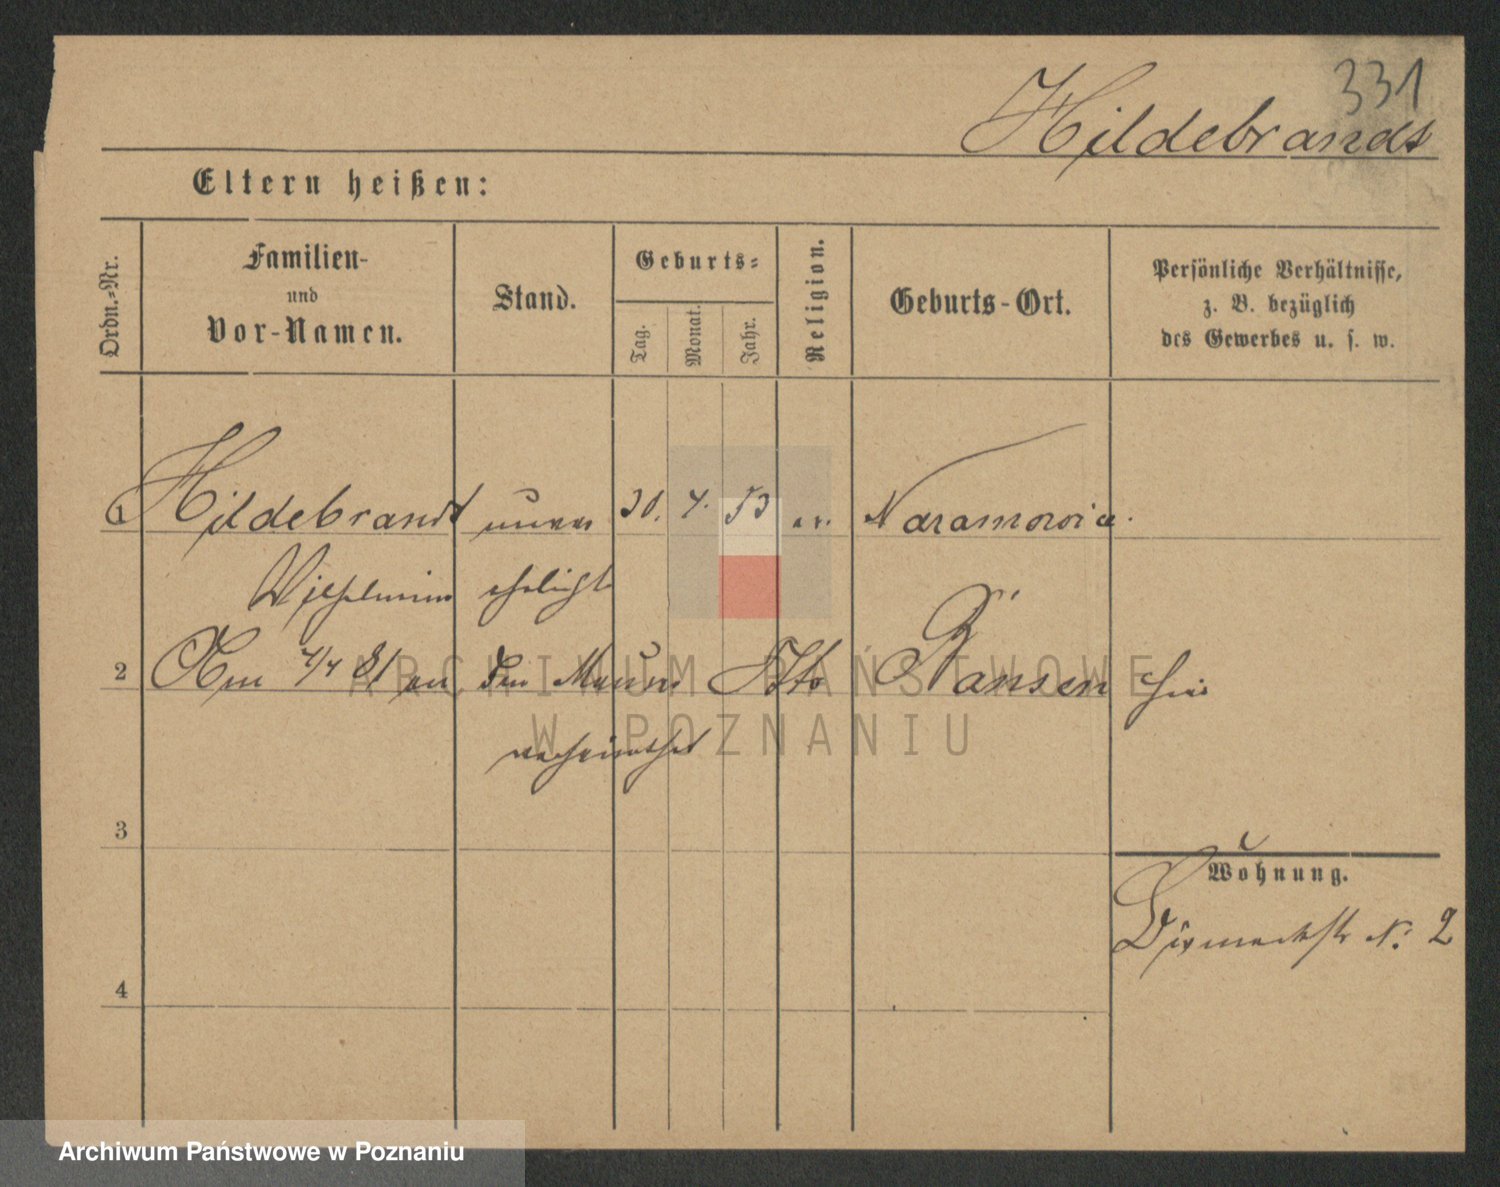 331
Hildebrandt
Eltern heißen:
Ordn.-Nr.
Familien-
und
Vor-Namen.
Stand.
Geburts-
Tag.
Monat.
Jahr.
Religion.
Geburts-Ort.
Persönliche Verhältnisse,
z. B. bezüglich
des Gewerbes u. s. w.
1 Hildebrandt unver 30. 4. 53 ev. Naramowice.
Wilhelmine ehelicht
2 Am 4/4 81 an den Maurer Otto Jänsen hier
verheirathet
3
Wohnung.
Bismarckstr No. 2
4
ARCHIWUM PAŃSTWOWE
W POZNANIU
Archiwum Państwowe w Poznaniu